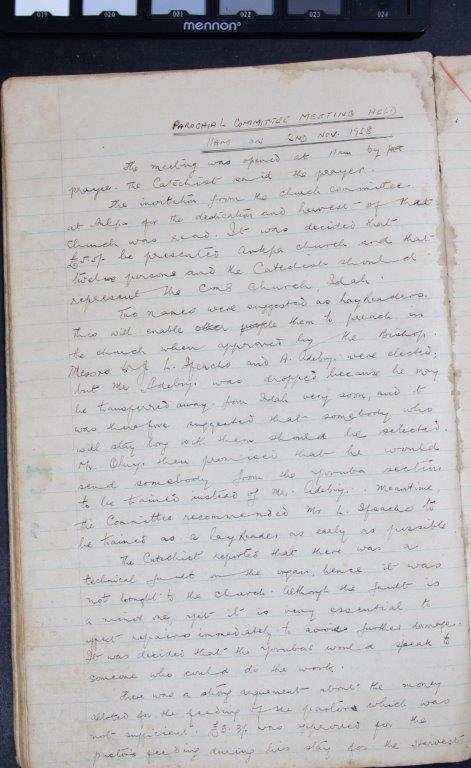 019 020 021 022 023 024
mennon®
PAROCHIAL COMMITTEE MEETING HELD
11AM ON 2ND NOV. 1958
The meeting was opened at 11am by
prayer. The Catechist said the prayer.
The invitation from the church committee
at Ankpa for the dedication and harvest of that
Church was read. It was decided that
£5.5/- be presented Ankpa church and that
twelve persons and the Catechist should
represent the CMS Church, Idah.
Two names were suggested as Layreaders.
This will enable them to preach in
the church when approved by the Bishop.
Messrs L. Ifeacho and A. Adebiyi were elected;
but Mr. Adebiyi was dropped because he may
be transferred away from Idah very soon, and it
was therefore suggested that somebody who
will stay long with them should be selected.
Mr. then promised that he would
send somebody from the Yoruba section
to be trained instead of Mr. Adebiyi. Meantime,
the Committee recommended Mr L. Ifeacho to
be trained as a layreader as early as possible
The Catechist reported that there was a
technical fault on the organ, hence it was
not brought to the Church. Although the fault is
a minor one, yet it is very essential to
effect repairs immediately to avoid further damage.
It was decided that the Yorubas would speak to
someone who could do the work.
There was a strong argument about the money
alloted for the feeding of the pastors which was
not sufficient. £3.3/- was approved for the
pastors feeding during his stay for the Harvest